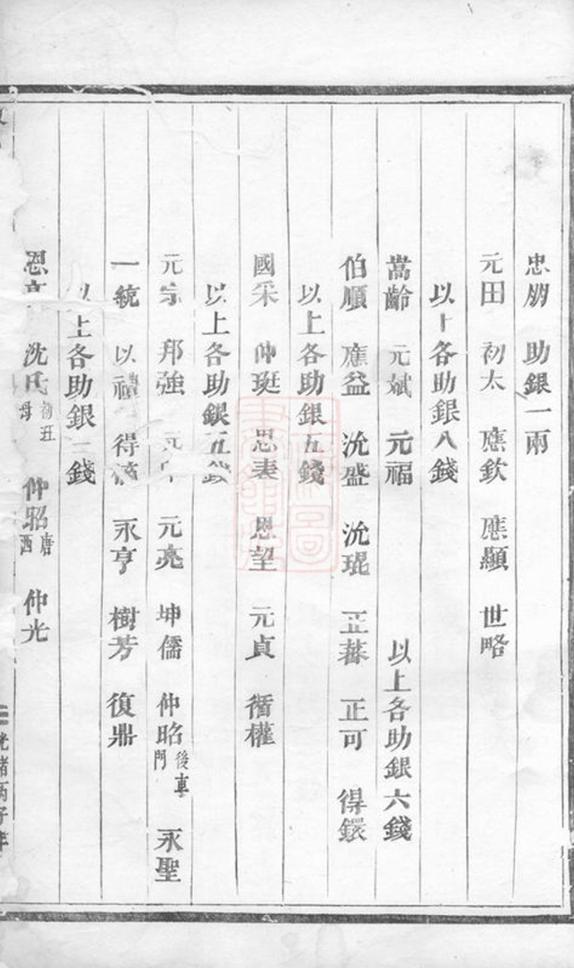 忠朋 助銀一兩
元田 初太 應欽 應顯 世略
以上各助銀八錢
嵩齡 元斌 元福 以上各助銀六錢
伯順 應益 沇盛 沇琨 正蓁 正可 得鐶
以上各助銀五錢
國采 仲珽 思表 恩望 元貞 衜權
以上各助銀五錢
元宗 邦強 元 元亮 坤儒 仲昭後車門 永聖
一統 以禮 得 永亨 樹芳 復鼎
以上各助銀二錢
恩 沈氏 丑母 仲昭唐西 仲光
光緒丙子年